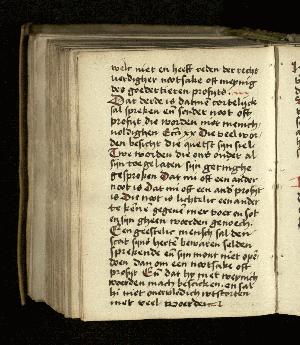 welt niet en heeft reden der recht
verdigher nootsake oft meynig
des goedertieren profyts.
Dat derde is datmē oorbelijck
sal spreken en sonder noot oft
profijt die woorden niet menich
voldighen Eccli xx Die veel woor
den besicht die quetst syn siel
Twe woorden die ons onder al
syn toegelaten syn geringhe
gesproken Dat mi oft een ander
noot is Dat mi oft een and' profijt
is Die noot is luchter een ander
te kennē gegeuē mer voer en sot
en syn gheen woerden genoech.
Een geestelic mensch sal den
scat syns herte bewaren selden
sprekende en syn mont niet ope
doen dan om een nootsake oft
profyt En dat hy met weynich
woerden mach beslucken. en sal
hi niet ouervloedich wtstorten
met veel woerden